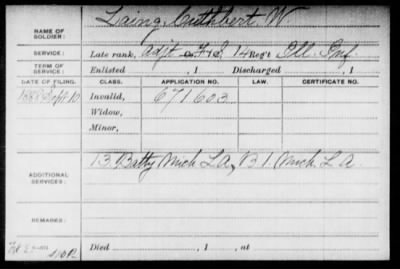 NAME OF SOLDIER: Laing, Cuthbert W.
SERVICE: Late rank, Adjt F&S 14 Reg't Ill. Inf.
TERM OF SERVICE: Enlisted , 1 Discharged , 1
DATE OF FILING. CLASS. APPLICATION NO. LAW. CERTIFICATE NO.
1888 Sept 10 Invalid, 671603
Widow,
Minor,
ADDITIONAL SERVICES: 13 Batty Mich L A, B 1 Mich L A
REMARKS:
Died , 1 , at